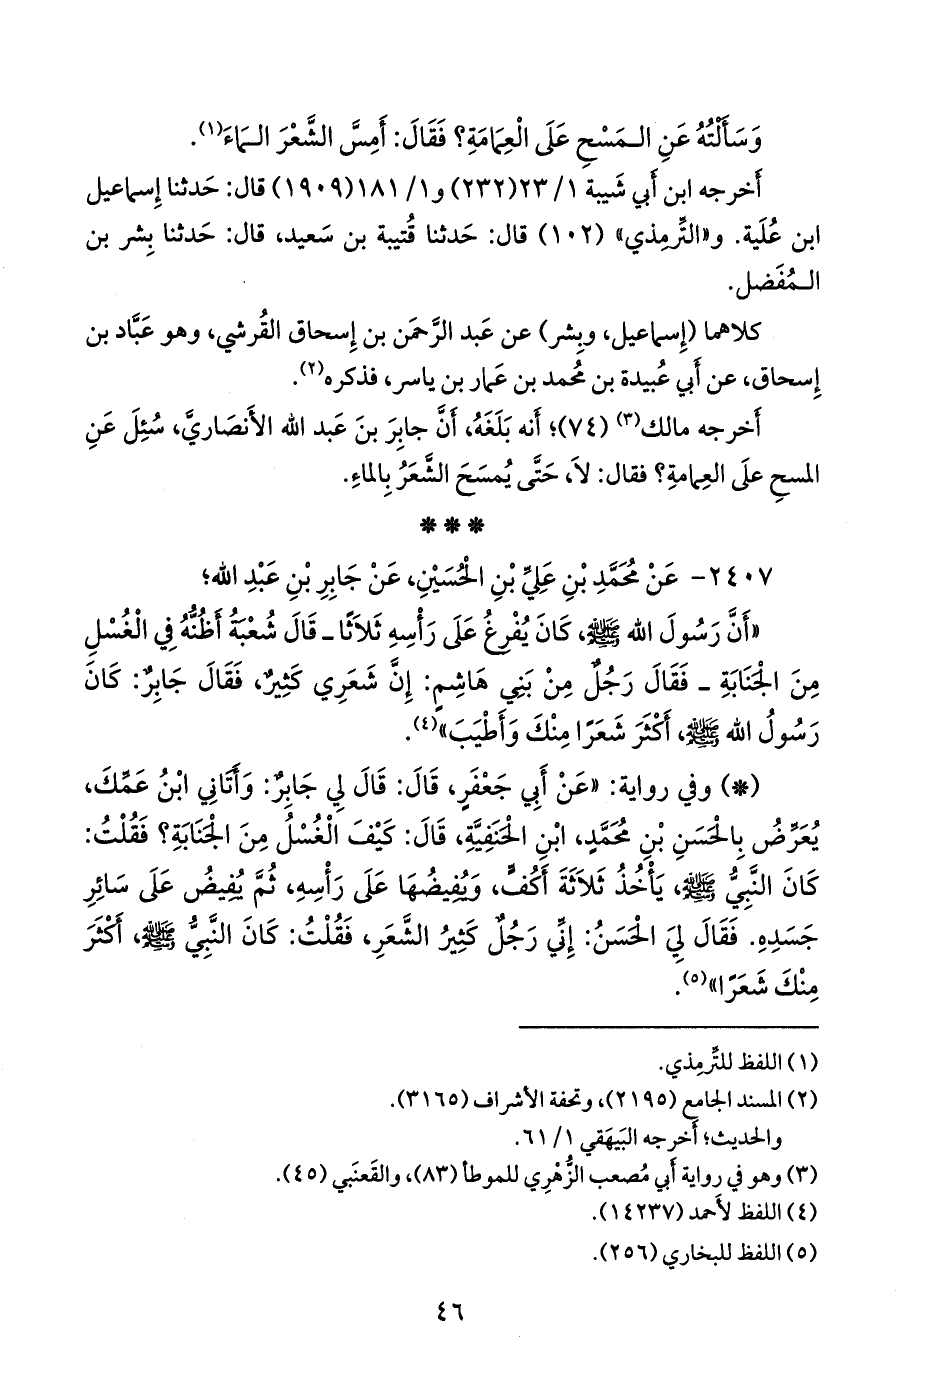 وَسَأَلْتُهُ عَنِ الـمَسْحِ عَلَى الْعِمَامَةِ؟ فَقَالَ: أَمِسَّ الشَّعْرَ الـمَاءَ(١).
أَخرجه ابن أَبي شَيبة ١/ ٢٣(٢٣٢) و١/ ١٨١(١٩٠٩) قال: حَدثنا إِسماعيل
ابن عُلَية. و«التِّرمِذي» (١٠٢) قال: حَدثنا قُتيبة بن سَعيد، قال: حَدثنا بِشر بن
الـمُفَضل.
كلاهما (إِسماعيل، وبِشر) عن عَبد الرَّحمَن بن إِسحاق القُرشي، وهو عَبَّاد بن
إِسحاق، عن أَبي عُبيدة بن مُحمد بن عَمار بن ياسر، فذكره(٢).
أَخرجه مالك(٣) (٧٤)؛ أَنه بَلَغَهُ، أَنَّ جابِرَ بنَ عَبد الله الأَنصَاريَّ، سُئِلَ عَنِ
المسحِ علَى العِمامةِ؟ فقال: لاَ، حَتَّى يُمسَحَ الشَّعَرُ بِالماءِ.
***
٢٤٠٧- عَنْ مُحَمَّدِ بْنِ عَلِيِّ بْنِ الْحُسَيْنِ، عَنْ جَابِرِ بْنِ عَبْدِ الله؛
«أَنَّ رَسُولَ الله ﷺ، كَانَ يُفْرِغُ عَلَى رَأْسِهِ ثَلاَثًا ـ قَالَ شُعْبَةُ أَظُنُّهُ فِي الْغُسْلِ
مِنَ الْجَنَابَةِ ـ فَقَالَ رَجُلٌ مِنْ بَنِي هَاشِمٍ: إِنَّ شَعَرِي كَثِيرٌ، فَقَالَ جَابِرٌ: كَانَ
رَسُولُ الله ﷺ، أَكْثَرَ شَعَرًا مِنْكَ وَأَطْيَبَ»(٤).
(*) وفي رواية: «عَنْ أَبِي جَعْفَرٍ، قَالَ: قَالَ لِي جَابِرٌ: وَأَتَانِي ابْنُ عَمِّكَ،
يُعَرِّضُ بِالْحَسَنِ بْنِ مُحَمَّدٍ، ابْنِ الْحَنَفِيَّةِ، قَالَ: كَيْفَ الْغُسْلُ مِنَ الْجَنَابَةِ؟ فَقُلْتُ:
كَانَ النَّبِيُّ ﷺ، يَأْخُذُ ثَلاَثَةَ أَكُفٍّ، وَيُفِيضُهَا عَلَى رَأْسِهِ، ثُمَّ يُفِيضُ عَلَى سَائِرِ
جَسَدِهِ. فَقَالَ لِيَ الْحَسَنُ: إِنِّي رَجُلٌ كَثِيرُ الشَّعَرِ، فَقُلْتُ: كَانَ النَّبِيُّ ﷺ، أَكْثَرَ
مِنْكَ شَعَرًا»(٥).
(١) اللفظ للتِّرمِذي.
(٢) المسند الجامع (٢١٩٥)، وتحفة الأشراف (٣١٦٥).
والحديث؛ أَخرجه البَيهَقي ١/ ٦١.
(٣) وهو في رواية أَبي مُصعب الزُّهْرِي للموطأ (٨٣)، والقَعنَبي (٤٥).
(٤) اللفظ لأَحمد (١٤٢٣٧).
(٥) اللفظ للبخاري (٢٥٦).
٤٦